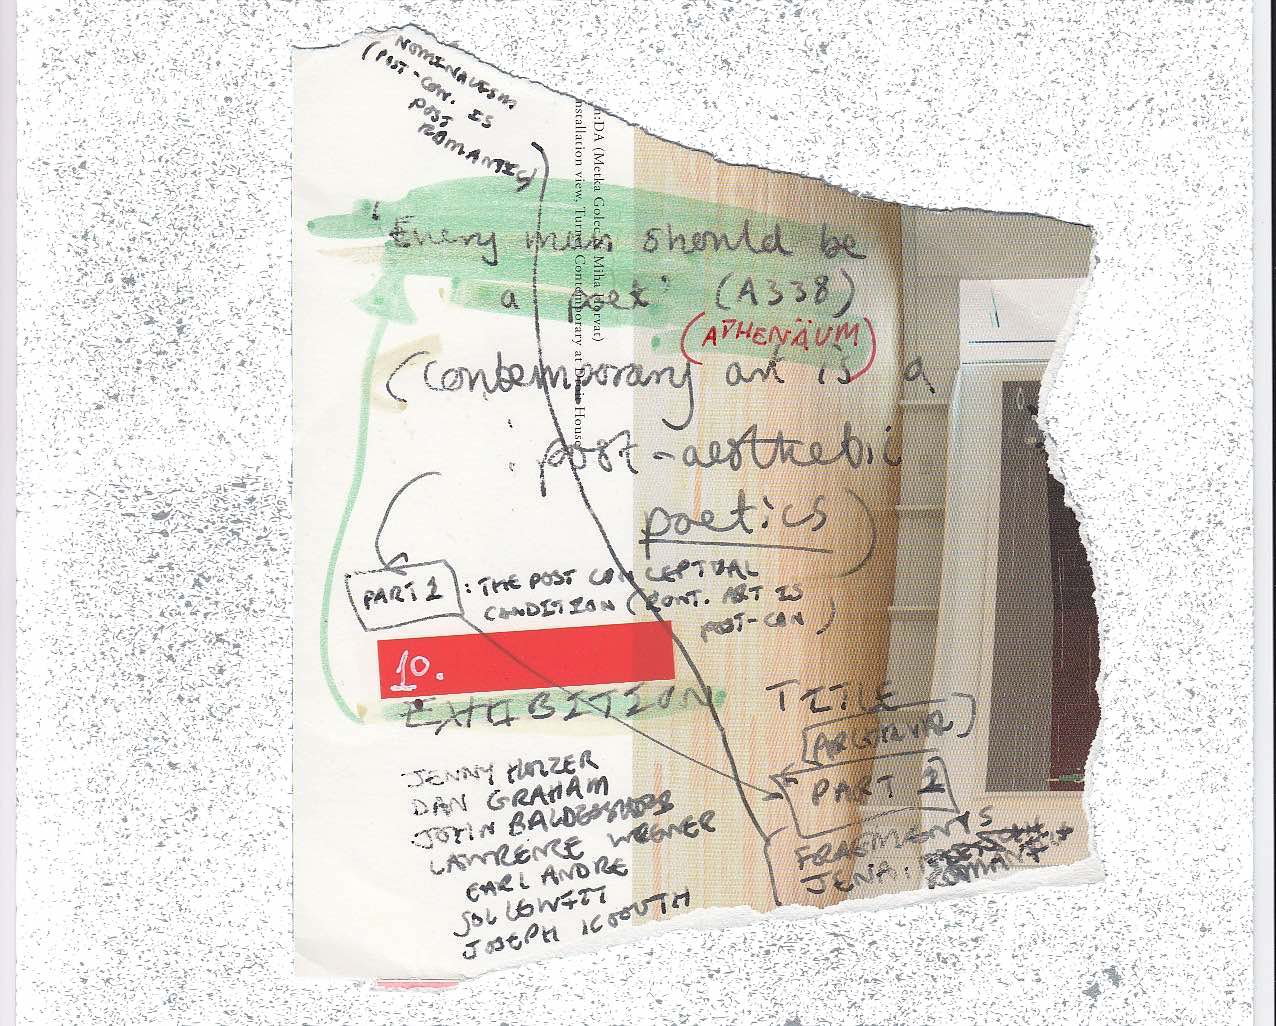 NOMINALISM
(POST-CON. IS
POST
ROMANTIC)
n:DA (Metka Golec Miha Horvat)
nstallation view, Turner Contemporary at Droit House
"Every man should be
a poet" (A338)
(ATHENÄUM)
(Contemporary art is a
post-aesthetic
poetics)
PART 1 : THE POST CONCEPTUAL
CONDITION (CONT. ART IS
POST-CON)
10.
EXHIBITION TITLE
JENNY HOLZER
DAN GRAHAM
JOHN BALDESSARI
LAWRENCE WEINER
CARL ANDRE
SOL LEWITT
JOSEPH KOSUTH
PART 2
FRAGMENTS
JENA:
ROMANT